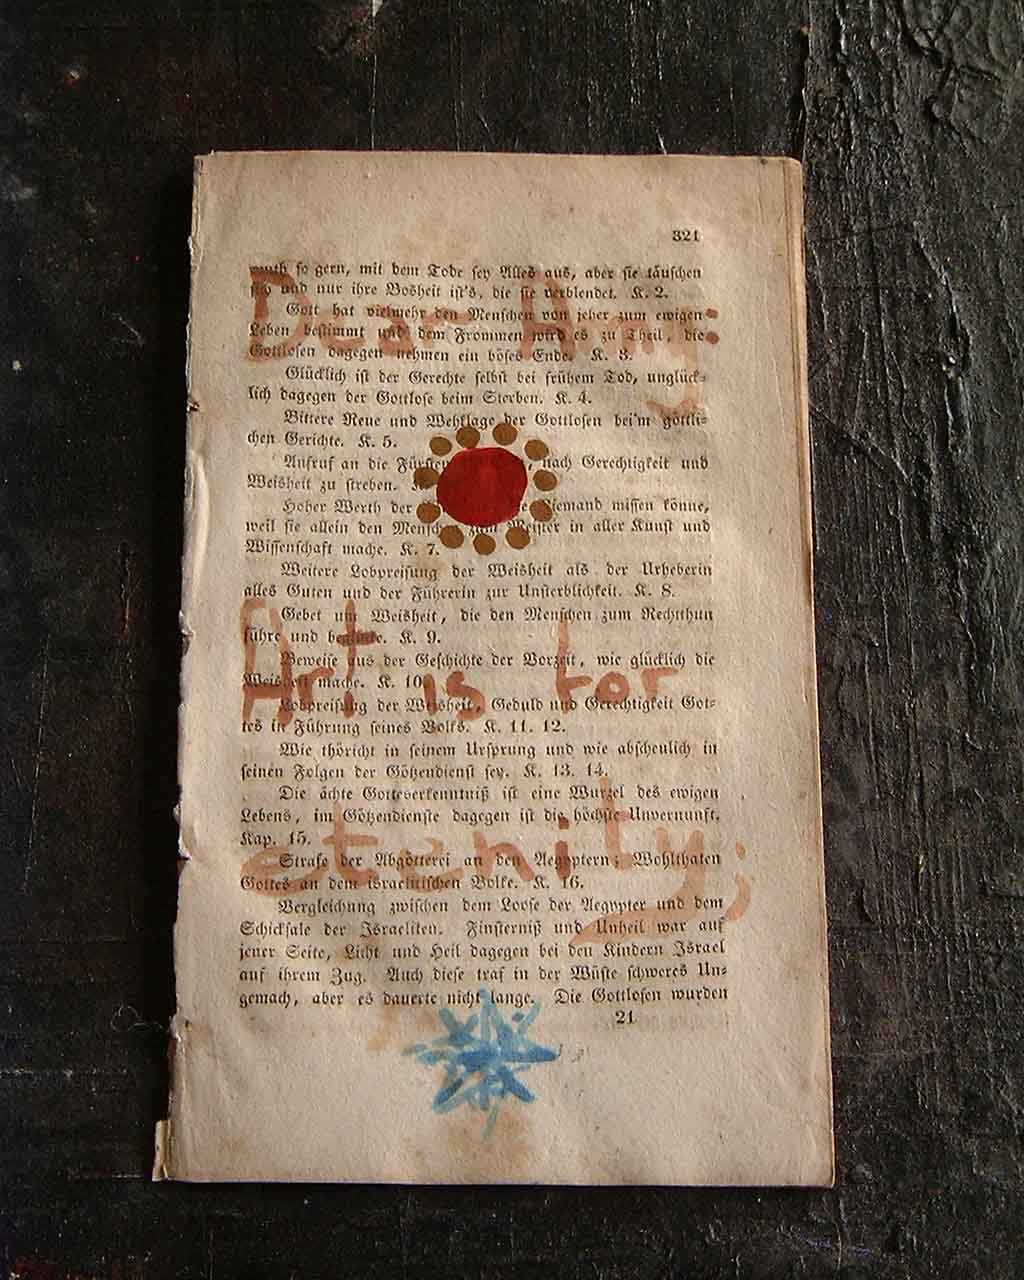 321
so gern, mit dem Tode sey Alles aus, aber sie täuschen
sich und nur ihre Bosheit ist's, die sie verblendet. K. 2.
Gott hat vielmehr den Menschen von jeher zum ewigen
Leben bestimmt und dem Frommen wird es zu Theil, die
Gottlosen dagegen nehmen ein böses Ende. K. 3.
Dear
Glücklich ist der Gerechte selbst bei frühem Tod, unglück-
lich dagegen der Gottlose beim Sterben. K. 4.
Bittere Reue und Wehklage der Gottlosen bei'm göttli-
chen Gerichte. K. 5.
Aufruf an die nach Gerechtigkeit und
Weisheit zu streben.
Hoher Werth der Niemand missen könne,
weil sie allein den Menschen zum Meister in aller Kunst und
Wissenschaft mache. K. 7.
Weitere Lobpreisung der Weisheit als der Urheberin
alles Guten und der Führerin zur Unsterblichkeit. K. 8.
Gebet um Weisheit, die den Menschen zum Rechtthun
führe und K. 9.
Beweise aus der Geschichte der Vorzeit, wie glücklich die
Weisheit mache. K. 10.
Art is for
Lobpreisung der Weisheit, Geduld und Gerechtigkeit Got-
tes in Führung seines Volks. K. 11. 12.
Wie thöricht in seinem Ursprung und wie abscheulich in
seinen Folgen der Götzendienst sey. K. 13. 14.
Die ächte Gotteserkenntniß ist eine Wurzel des ewigen
Lebens, im Götzendienste dagegen ist die höchste Unvernunft.
Kap. 15.
eternity,
Strafe der Abgötterei an den Aegyptern; Wohlthaten
Gottes an dem israelitischen Volke. K. 16.
Vergleichung zwischen dem Loose der Aegypter und dem
Schicksale der Israeliten. Finsterniß und Unheil war auf
jener Seite, Licht und Heil dagegen bei den Kindern Israel
auf ihrem Zug. Auch diese traf in der Wüste schweres Un-
gemach, aber es dauerte nicht lange. Die Gottlosen wurden
21